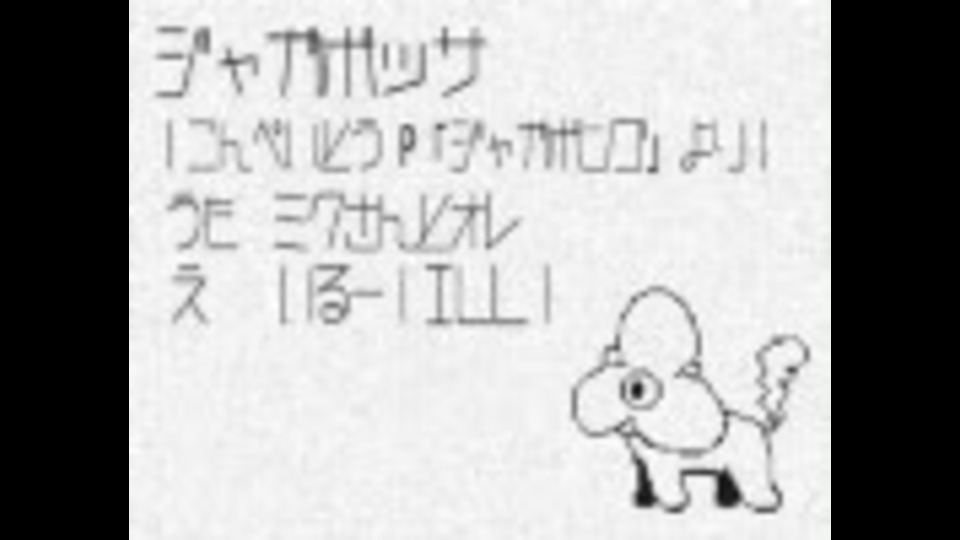 ジャガボッサ
|こんぺいとうP「ジャガボンゴ」より|
うた ミクさんとオレ
え |いるー|ILL|